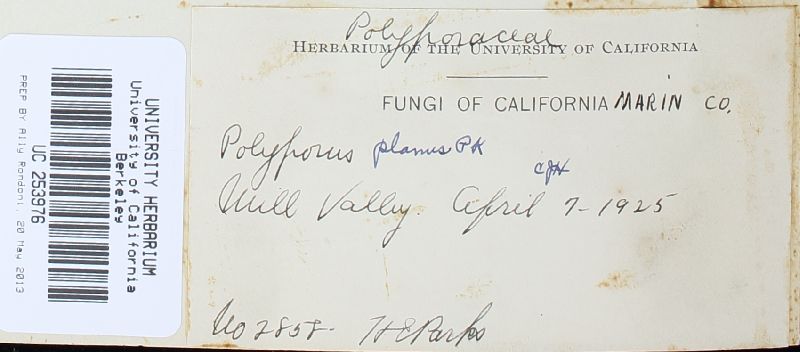 Polyporaceae
HERBARIUM OF THE UNIVERSITY OF CALIFORNIA
FUNGI OF CALIFORNIA MARIN CO.
Polyporus planus PK
CJH
Mill Valley. April 7-1925
No 2858. HE Parks
UNIVERSITY HERBARIUM
University of California
Berkeley
UC 253976
PREP BY Ally Rondoni, 20 May 2013